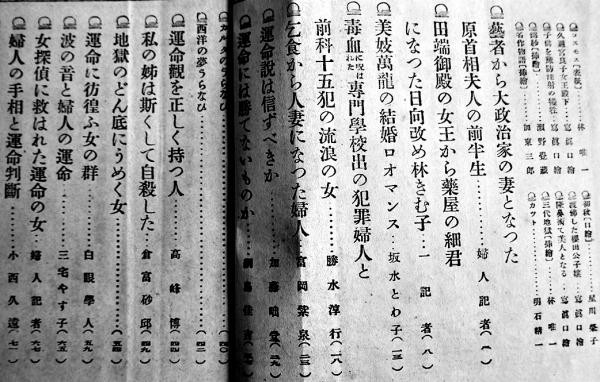 コスモス【表紙】……林 唯一
久邇宮良子女王殿下……寫眞口繪
子供を豫防注射の犠牲……寫眞口繪
名作物語【挿繪】……加東三郎
三代地獄【挿繪】……林 唯一
カツト……明石精一
藝者から大政治家の妻となつた
原首相夫人の前半生……婦人記者(二)
田端御殿の女王から藥屋の細君
になつた日向改め林きむ子……一記者(八)
美妓萬龍の結婚ロオマンス……坂水とわ子(一三)
毒血に呪はれた專門學校出の犯罪婦人と
前科十五犯の流浪の女……勝水淳行(一八)
乞食から人妻になつた婦人……富岡紫泉(二三)
運命說は信ずべきか……加藤咄堂(二九)
運命には勝てないものか
西洋の夢うらなひ……(四二)
運命觀を正しく持つ人……高峰博(四四)
私の姉は斯くして自殺した……倉富砂邱(四九)
地獄のどん底にうめく女……(五四)
運命に彷徨ふ女の群……白眼學人(五九)
波の音と婦人の運命……三宅やす子(六五)
女探偵に救はれた運命の女……婦人記者(六七)
婦人の手相と運命判斷……小西久遠(七一)